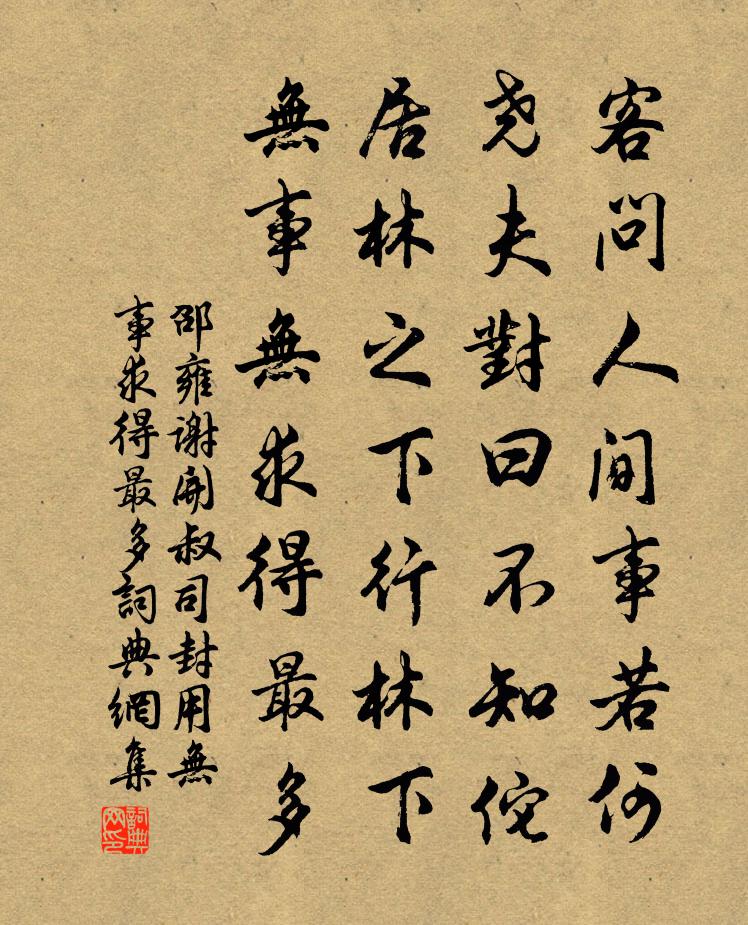 客問人間事若何
尧夫對曰不知佗
居林之下行林下
無事無求得最多
邵雍謝開叔司封用無
事求得最多詞典網集
詞典网印